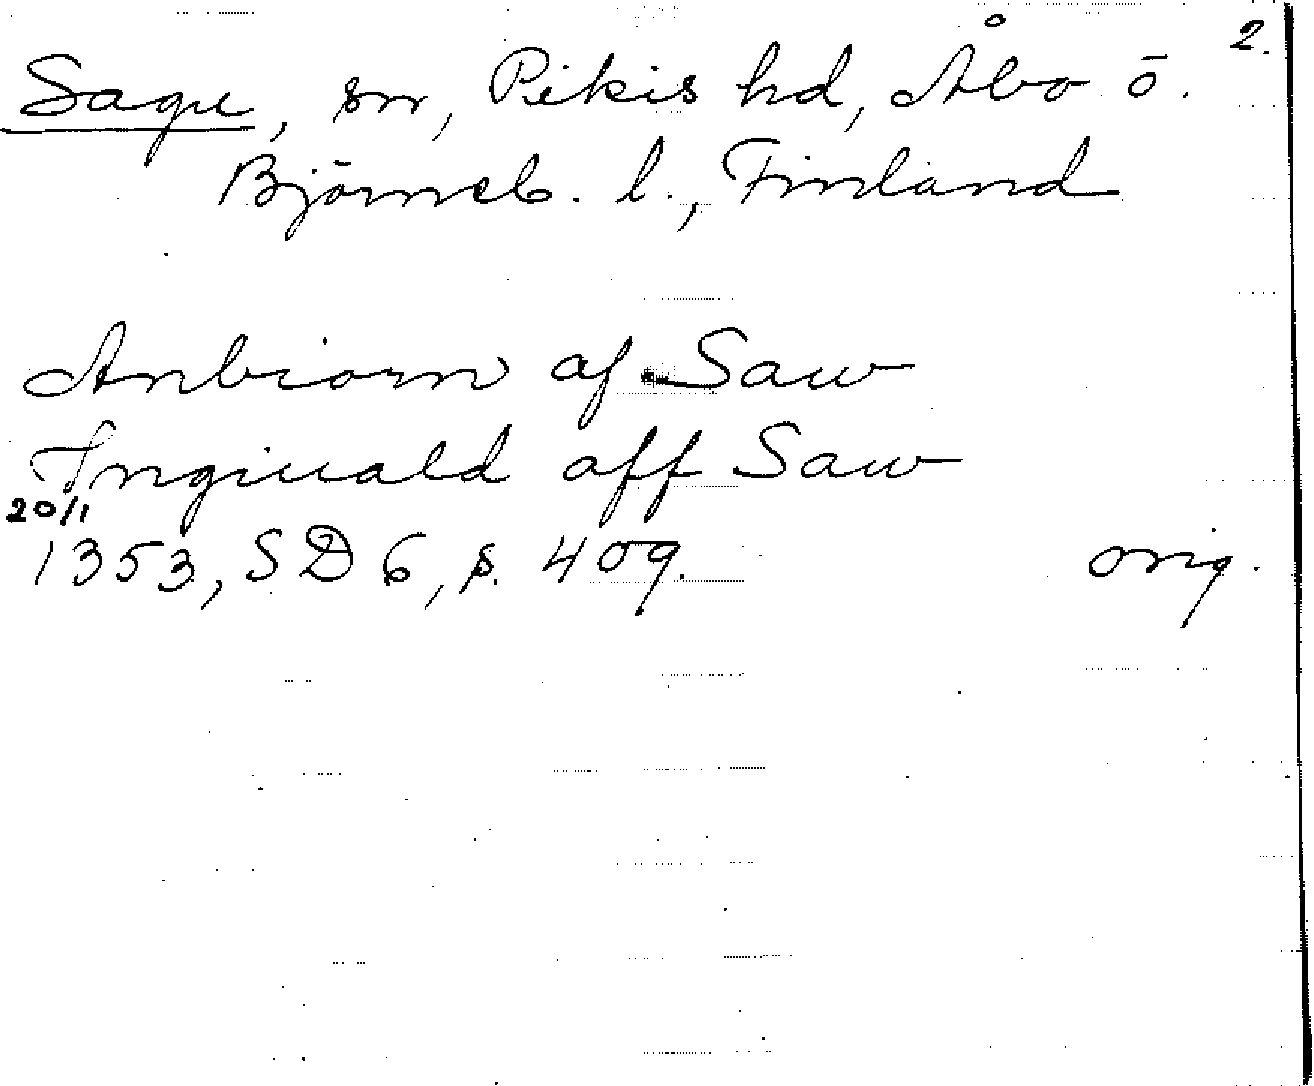 2.
Sagu, sn, Pikis hd, Åbo ō.
Björneb. l., Finland
Anbiorn af Saw
Inguald aff Saw
20/1
1353, SD 6, s. 409.
orig.